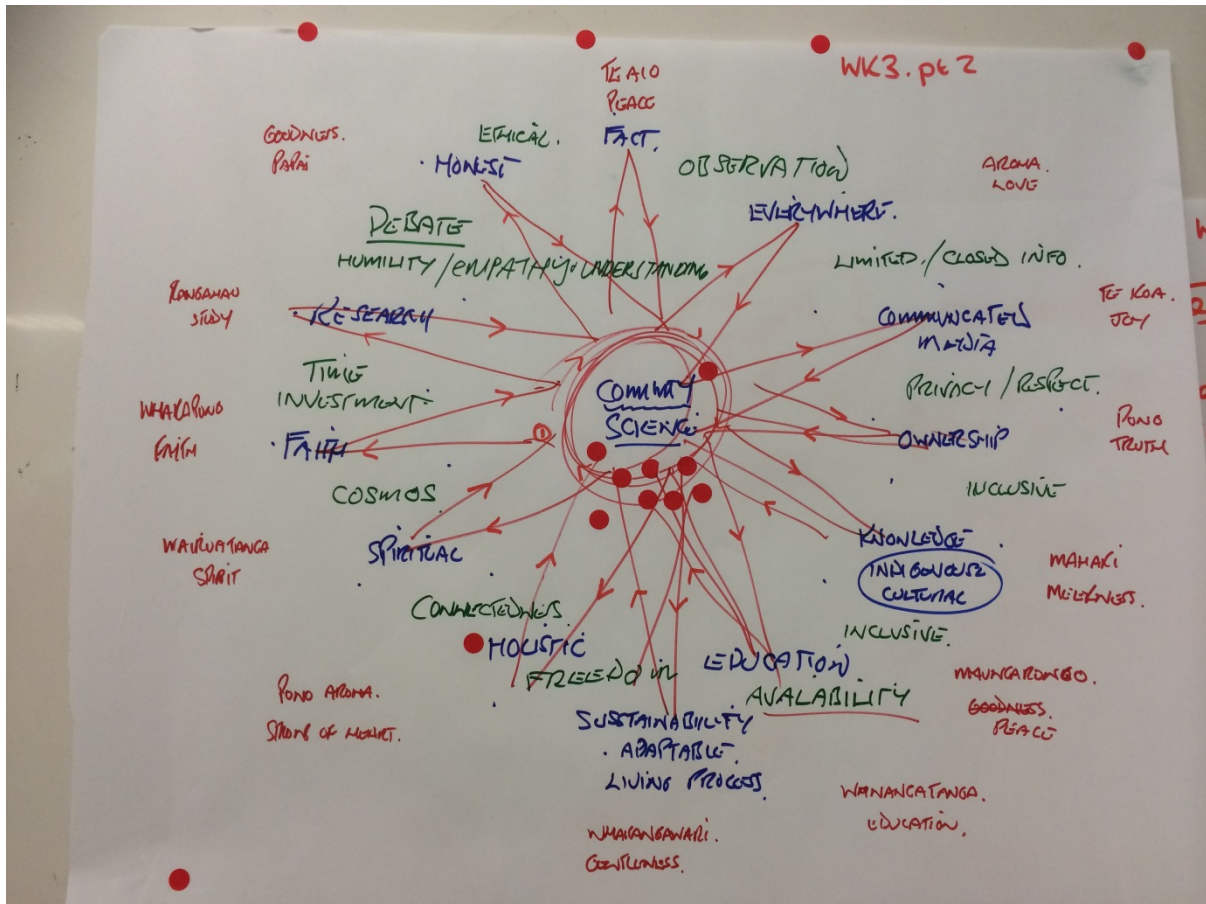 WK3. pt 2
TE AIO
PEACE
FACT.
GOODNESS.
PAPAI
ETHICAL.
HONEST
OBSERVATION
EVERYWHERE.
AROMA.
LOVE
DEBATE
HUMILITY / EMPATHY. UNDERSTANDING
LIMITED. / CLOSED INFO.
RANGAHAU
STUDY
RESEARCH
COMMUNCATED
MEDIA
TE KOA.
JOY
TIME
INVESTMENT.
COMMUNITY
SCIENCE
PRIVACY / RESPECT.
WHAKAPONO
FAITH
FAITH
OWNERSHIP
PONO
TRUTH
COSMOS
INCLUSIVE
WAIRUATANGA
SPIRIT
SPIRITUAL
KNOWLEDGE
INDIGENOUSE
CULTURAL
MAHAKI
MEEKNESS.
CONNECTEDNESS
HOLISTIC
INCLUSIVE.
FREEDOM
EDUCATION
AVALABILITY
MAUNGARONGO.
GOODNESS.
PEACE
PONO AROMA.
STRONG OF HEART.
SUSTAINABILITY
. ADAPTABLE.
LIVING PROCESS.
WANANGATANGA.
EDUCATION.
GENTLENESS.